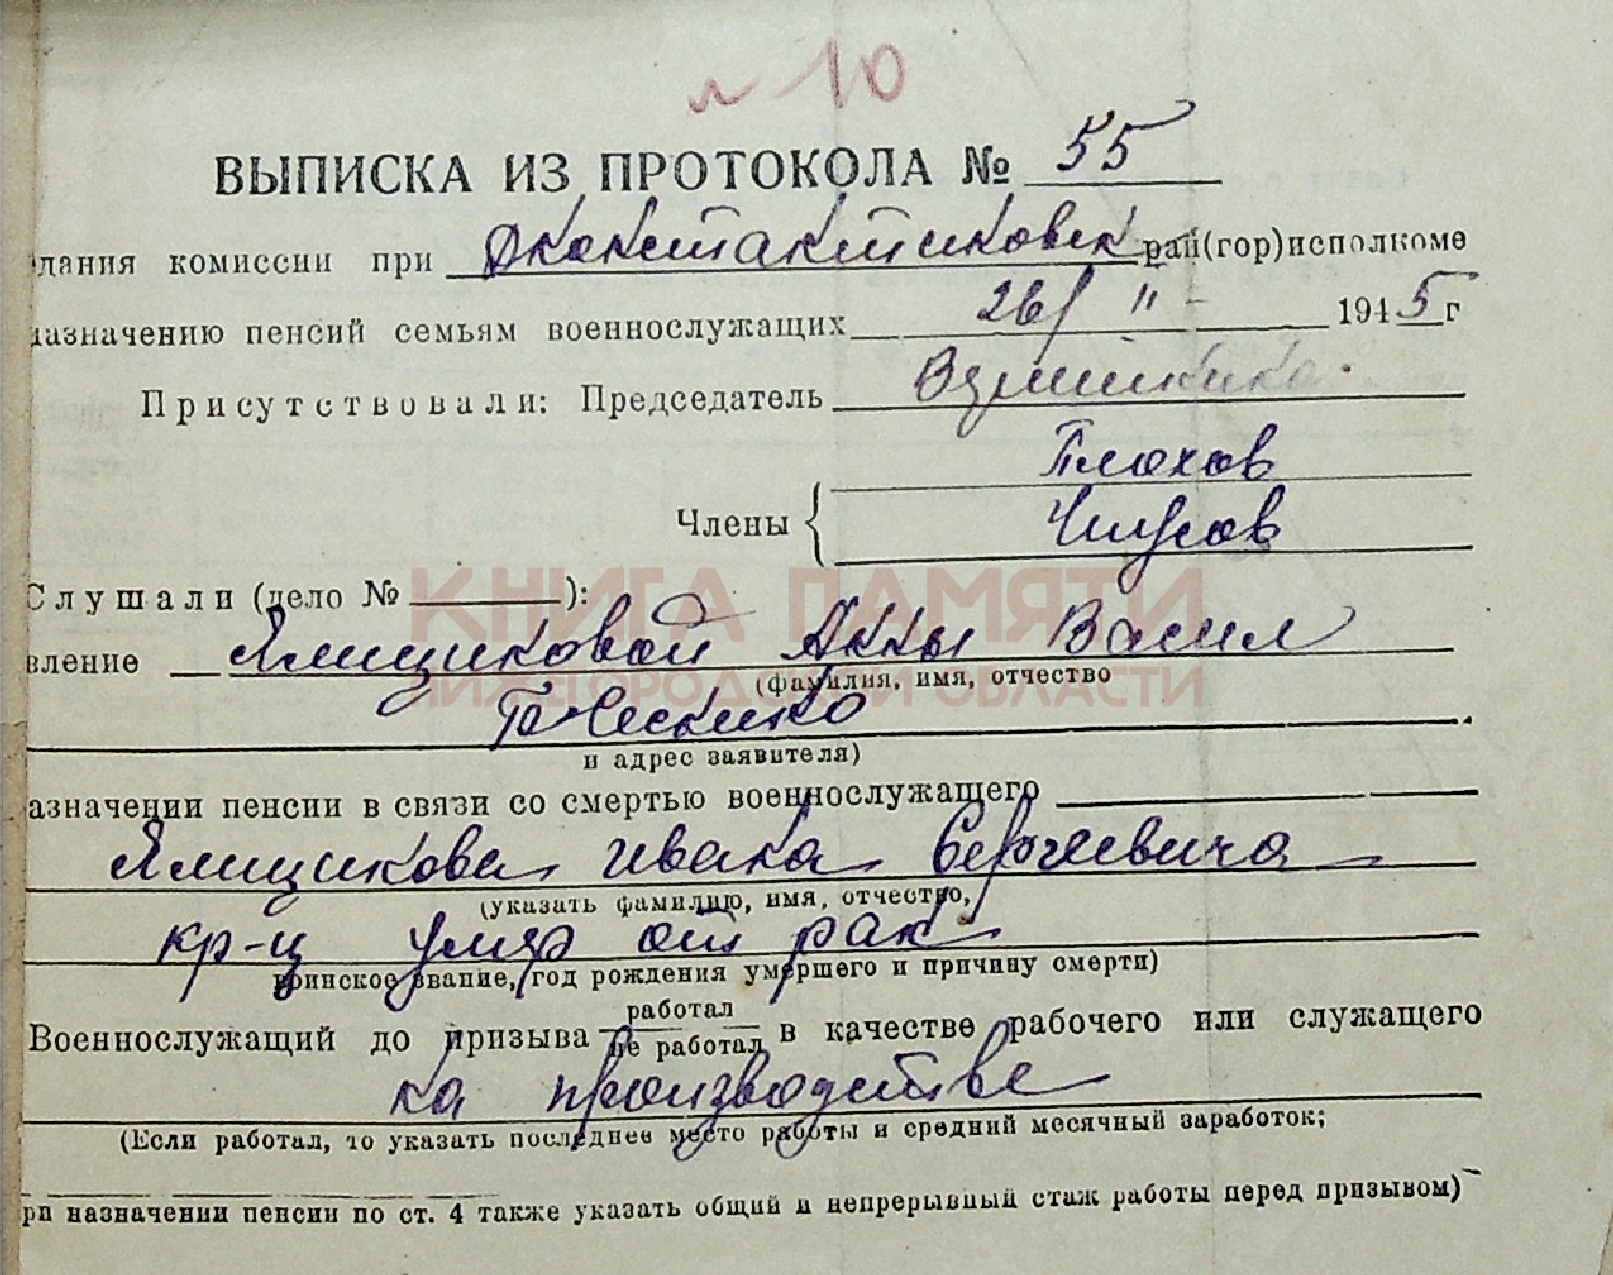 л 10
ВЫПИСКА ИЗ ПРОТОКОЛА № 55
дания комиссии при рай(гор)исполкоме
назначению пенсий семьям военнослужащих 26/ II - 1945 г
Присутствовали: Председатель
Плохов
Члены
Слушали (дело № ):
вление Ямщиковой Анны Васил
(фамилия, имя, отчество
и адрес заявителя)
азначении пенсии в связи со смертью военнослужащего
Ямщикова Ивана Сергеевича
(указать фамилию, имя, отчество,
кр-ц умер от ран
воинское звание, год рождения умершего и причину смерти)
Военнослужащий до призыва работал не работал в качестве рабочего или служащего
на производстве
(Если работал, то указать последнее место работы и средний месячный заработок;
ри назначении пенсии по ст. 4 также указать общий и непрерывный стаж работы перед призывом)
КНИГА ПАМЯТИ
НИЖЕГОРОДСКОЙ ОБЛАСТИ